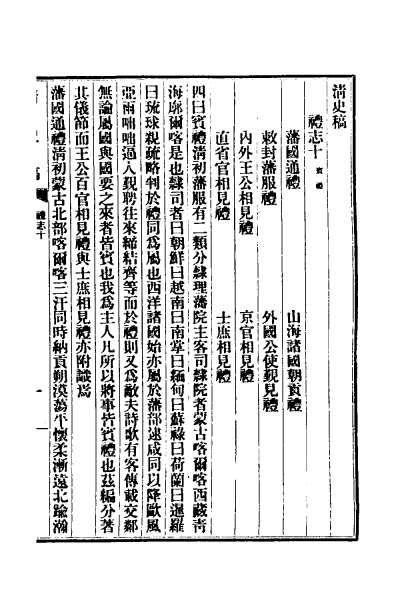 清史稿
禮志十 賓禮
藩國通禮 山海諸國朝貢禮
敕封藩服禮 外國公使覲見禮
內外王公相見禮 京官相見禮
直省官相見禮 士庶相見禮
四曰賓禮清初藩服有二類分隸理藩院主客司隸院者蒙古喀爾喀西藏青
海廓爾喀是也隸司者曰朝鮮曰越南曰南掌曰緬甸曰蘇祿曰荷蘭曰暹羅
曰琉球親疏略判於禮同爲屬也西洋諸國始亦屬於藩部逮咸同以降歐風
亞雨咄咄逼人覲聘往來締結齊等而於禮則又爲敵夫詩歌有客傳載交鄰
無論屬國與國要之來者皆賓也我爲主人凡所以將事皆賓禮也茲編分著
其儀節而王公百官相見禮與士庶相見禮亦附識焉
藩國通禮清初蒙古北部喀爾喀三汗同時納貢朔漠蕩平懷柔漸遠北踰瀚
禮志十
一